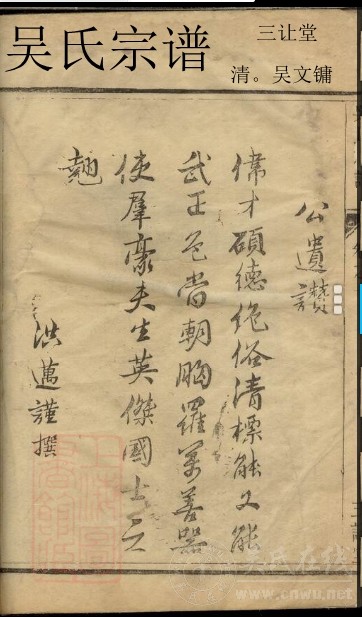 吴氏宗谱
三让堂
清。吴文镛
公遺讃
偉才碩德絶俗清標能文能
武正色當朝胸羅萬善器
使羣豪天生英傑國士之
翹
洪邁謹撰
吴氏在线
www.cnwu.net